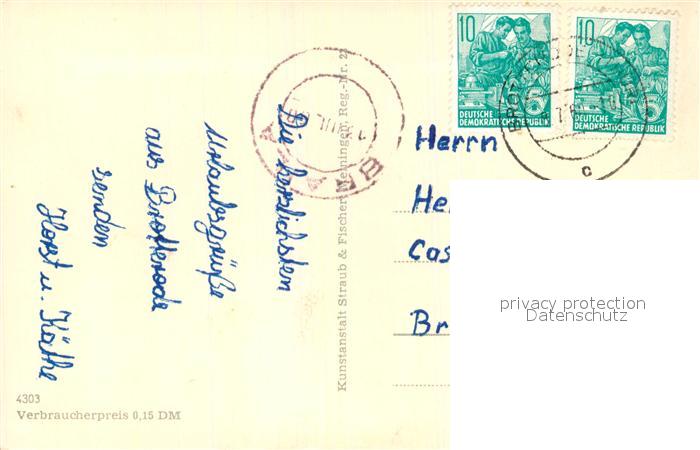 Die herzlichsten
Urlaubsgrüße
aus Brotterode
senden
Horst u. Käthe
4303
Verbraucherpreis 0,15 DM
Kunstanstalt Straub & Fischer Meiningen, Reg.-Nr.
10
DEUTSCHE
DEMOKRATISCHE REPUBLIK
10
DEUTSCHE
DEMOKRATISCHE REPUBLIK
c
Herrn
He
Cas
Br
privacy protection
Datenschutz